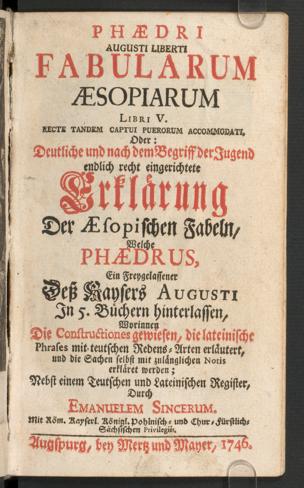 PHÆDRI
AUGUSTI LIBERTI
FABULARUM
ÆSOPIARUM
LIBRI V.
RECTE TANDEM CAPTUI PUERORUM ACCOMMODATI,
Oder:
Deutliche und nach dem Begriff der Jugend
endlich recht eingerichtete
Erklärung
Der Æsopischen Fabeln,
Welche
PHÆDRUS,
Ein Freygelassener
Deß Kaysers AUGUSTI
In 5. Büchern hinterlassen,
Worinnen
Die Constructiones gewiesen, die lateinische
Phrases mit teutschen Redens-Arten erläutert,
und die Sachen selbst mit zulänglichen Notis
erkläret werden;
Nebst einem Teutschen und Lateinischen Register,
Durch
EMANUELEM SINCERUM.
Mit Röm. Kayserl. Königl. Pohlnisch- und Chur-Fürstlich-
Sächsischen Privilegiis.
Augspurg, bey Mertz und Mayer, 1746.